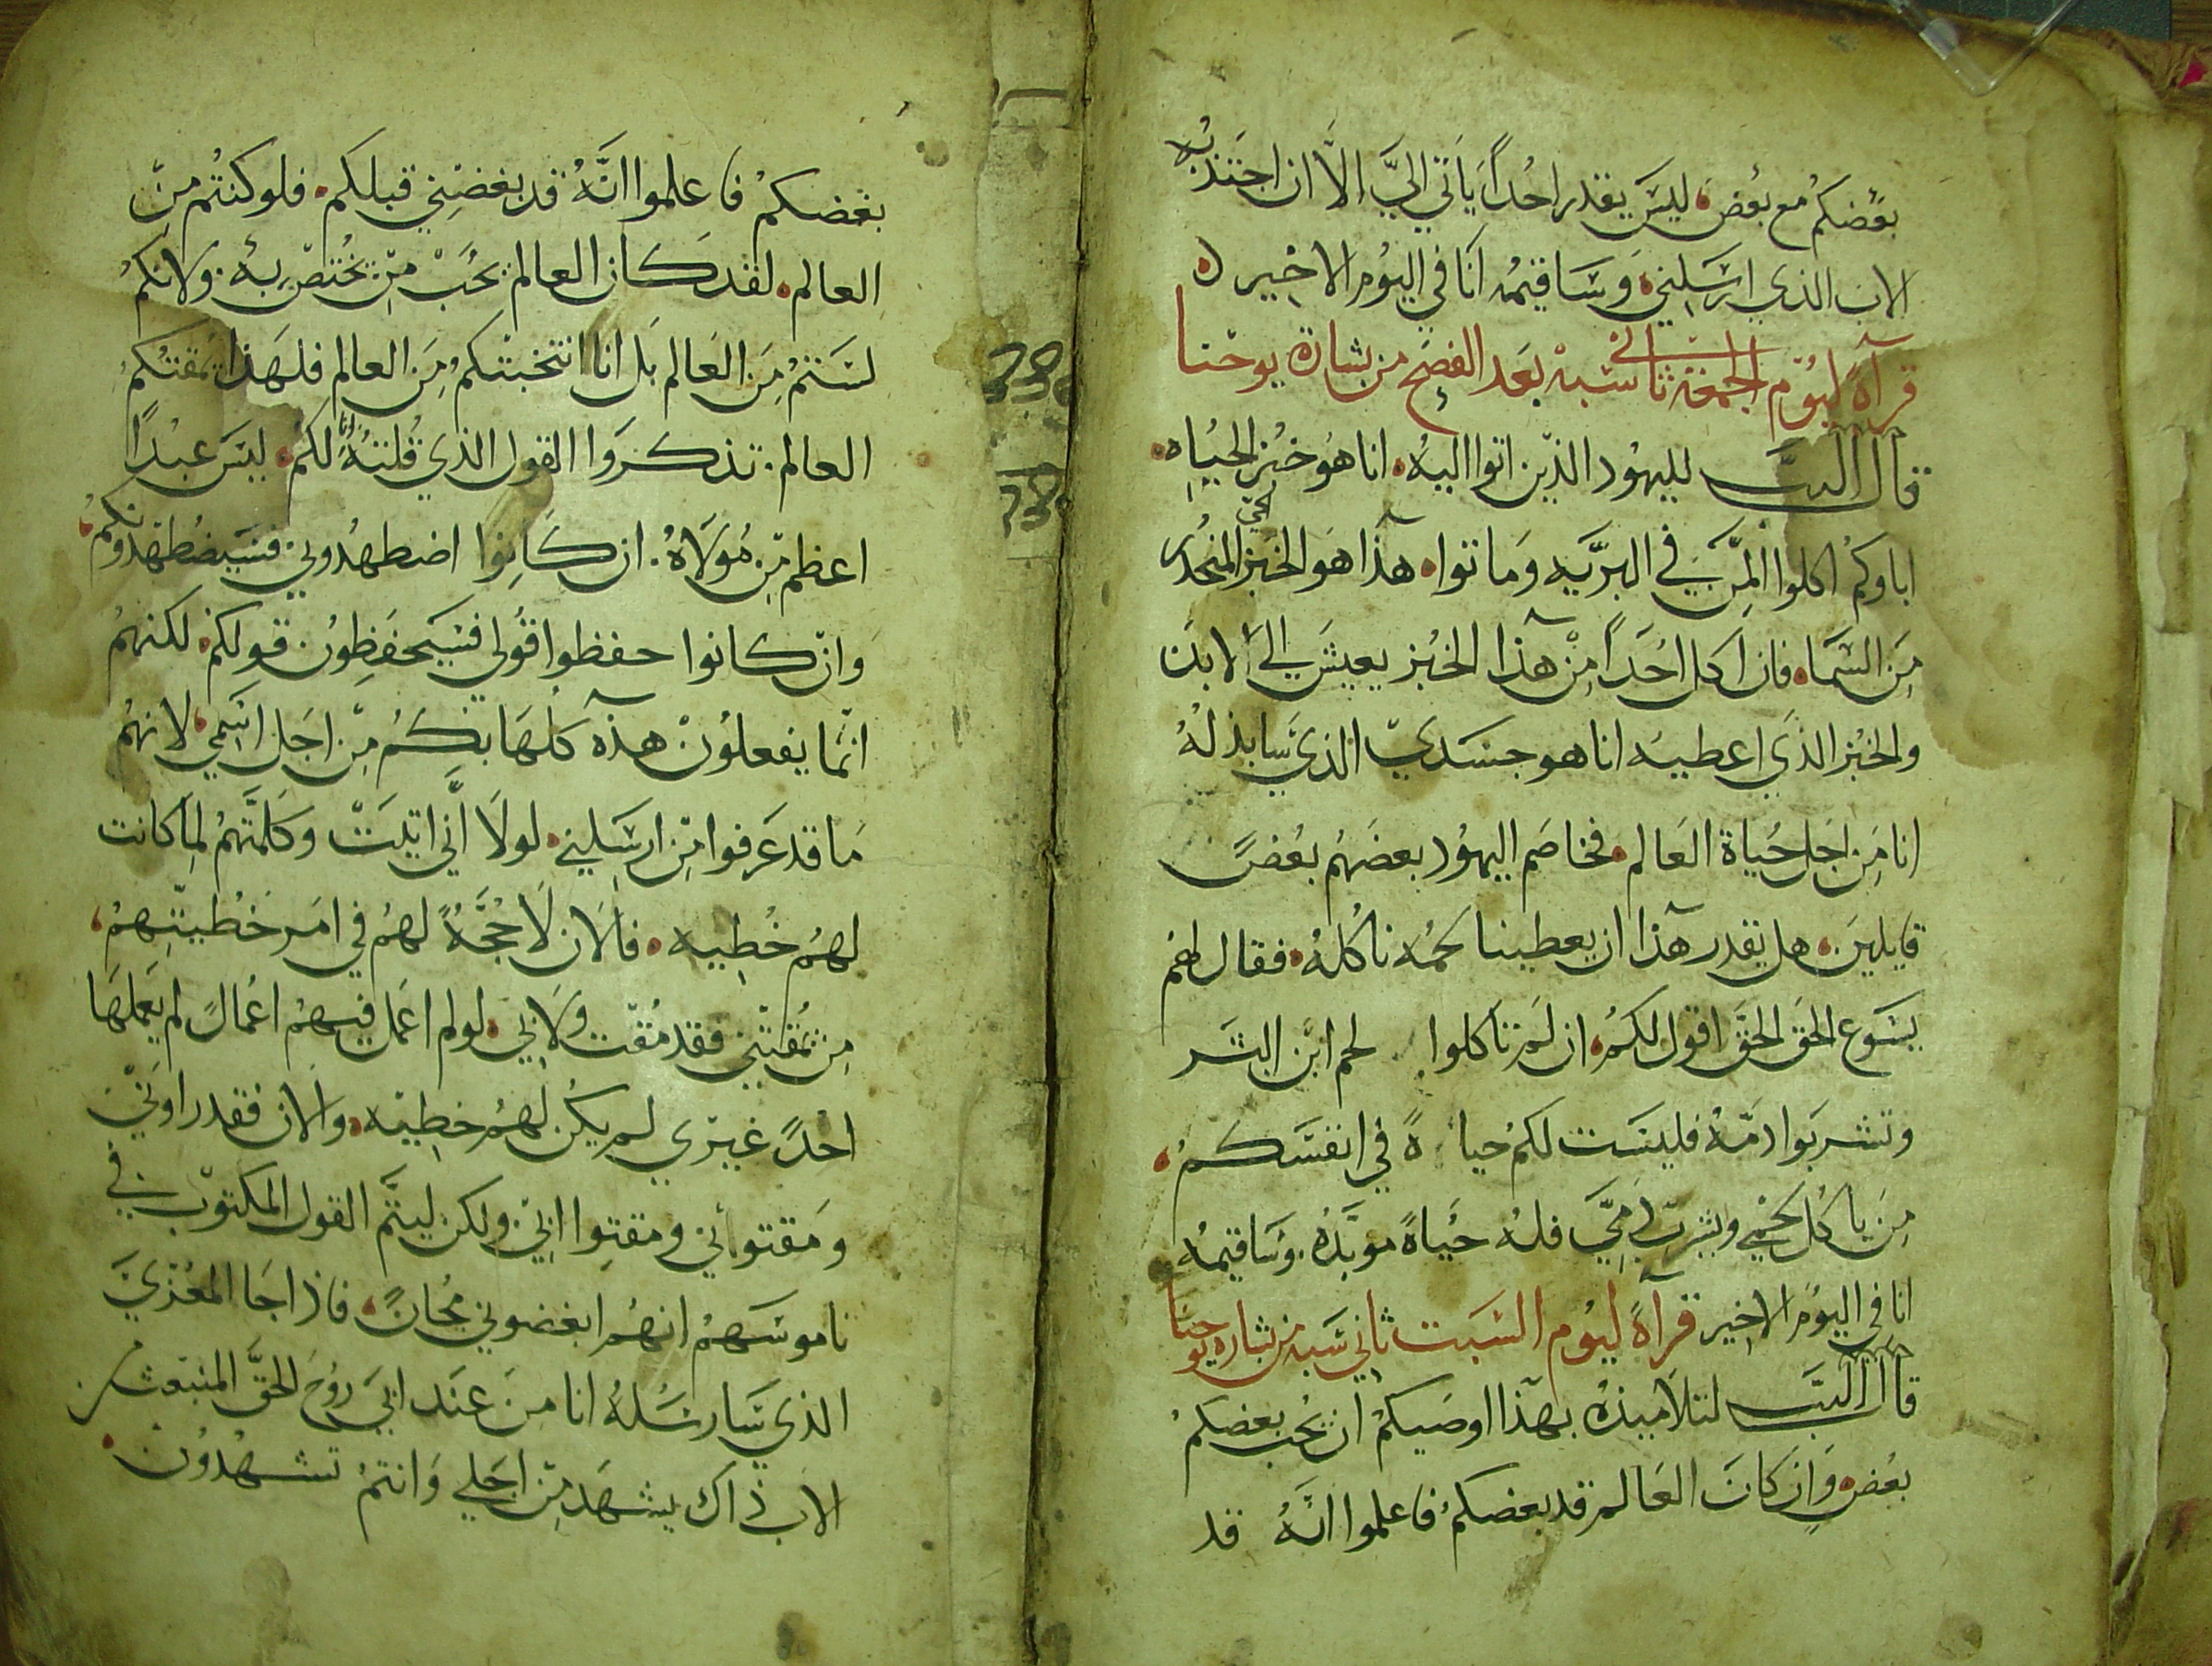 بعضكم مع بعض ليس يقدر احداً ياتي اليّ الّا ان اجتذبه
الاب الذي ارسلني وساقيمه انا في اليوم الاخير
قرآة ليوم الجمعة ثاني شبة بعد الفصح من بشارة يوحنا
قال الرب لليهود الذين اتوا اليه انا هو خبز الحياه
اباوكم اكلوا المن في البريه وماتوا هذا هو الخبز الحي المنحدر
من السما فان اكل احداً من هذا الخبز يعيش الى الابد
والخبز الذي اعطيه انا هو جسدي الذي سابذله
انا من اجل حياة العالم فخاصم اليهود بعضهم بعضً
قايلين هل يقدر هذا ان يعطينا لحمه ناكله فقال لهم
يسوع الحق الحق اقول لكم ان لم تاكلوا لحم ابن البشر
وتشربوا دمه فليست لكم حياةً في انفسكم
من ياكل لحمي ويشرب دمي فله حياةً موبده وساقيمه
انا في اليوم الاخير قرآة ليوم السبت ثاني شبه من بشاره يوحنا
قال الرب لتلاميذه بهذا اوصيكم ان يحب بعضكم
بعض وان كان العالم قد بغضكم فاعلموا انه قد
بغضكم فاعلموا انه قد بغضني قبلكم فلو كنتم من
العالم لقد كان العالم يحب من يختص به ولانكم
لستم من العالم بل انا انتخبتكم من العالم فلهذا يمقتكم
العالم تذكروا القول الذي قلته انا لكم ليس عبداً
اعظم من مولاه ان كانوا اضطهدوني فسيضطهدونكم
وان كانوا حفظوا قولي فسيحفظون قولكم لكنهم
انما يفعلون هذه كلها بكم من اجل اسمي لانهم
ما قد عرفوا من ارسلني لولا اني اتيت وكلمتهم لما كانت
لهم خطيه فالان لا حجةً لهم في امر خطيتهم
من يمقتني فقد مقت ولابي لو لم اعمل فيهم اعمالً لم يعملها
احدً غيري لم يكن لهم خطيه والان فقد راوني
ومقتوني ومقتوا ابي ولكن ليتم القول المكتوب في
ناموسهم انهم ابغضوني مجانً فاذا جا المعزي
الذي سارسله انا من عند ابي روح الحق المنبعث من
الاب ذاك يشهد من اجلي وانتم تشهدون